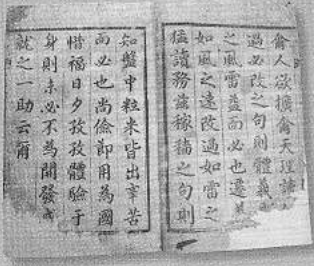 人欲擴天理誦
過必改之句則體義
之風雷益而必也遷
如風之速改過如雷之
猛讀務茲稼穡之句則
知盤中粒米皆出辛苦
而必也尚儉即用為國
惜福日夕孜孜體驗于
身則未必不為開發成
就之一助云爾